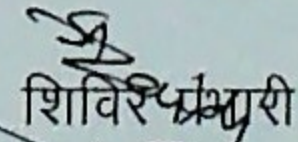 शिविर प्रभारी